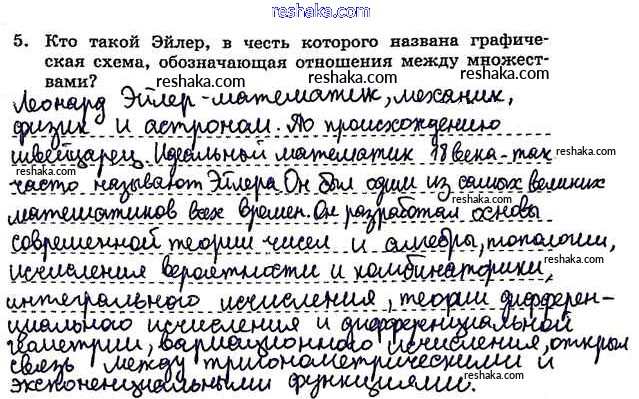 reshaka.com
5. Кто такой Эйлер, в честь которого названа графиче-
ская схема, обозначающая отношения между множест-
вами? reshaka.com reshaka.com
Леонард Эйлер-математик, механик,
физик и астроном. По происхождению reshaka.com
швейцарец. Идеальный математик 18 века-так reshaka.com
часто называют Эйлера. Он был одим из самых великих
математиков всех времен. Он разработал основы reshaka.com
современной теории чисел и алгебры, топологии,
исчисления вероятности и комбинаторики, reshaka.com
интегрального исчисления, теории дифферен-
циального исчисления и дифференциальной
геометрии, вариационного исчисления, открыл
связь между тригонометрическими и
экспоненциальными функциями. reshaka.com